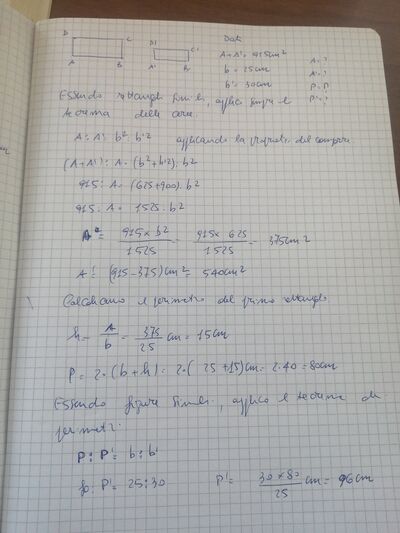 D C D' C' A B A' B'
Dati
A+A' = 915 cm² A = ?
b = 25 cm A' = ?
b' = 30 cm P = ?
P' = ?
Essendo rettangoli simili, applico sempre il
teorema delle aree.
A : A' = b² : b'² applicando la proprietà del comporre
(A+A') : A = (b²+b'²) : b²
915 : A = (625+900) : b²
915 : A = 1525 : b²
A = 915 x b² / 1525 = 915 x 625 / 1525 = 375 cm²
A' = (915-375) cm² = 540 cm²
Calcoliamo il perimetro del primo rettangolo
h = A / b = 375 / 25 cm = 15 cm
P = 2 · (b + h) = 2 · (25 + 15) cm = 2 · 40 = 80 cm
Essendo figure simili, applico il teorema dei
perimetri:
P : P' = b : b'
80 : P' = 25 : 30 P' = 30 x 80 / 25 cm = 96 cm